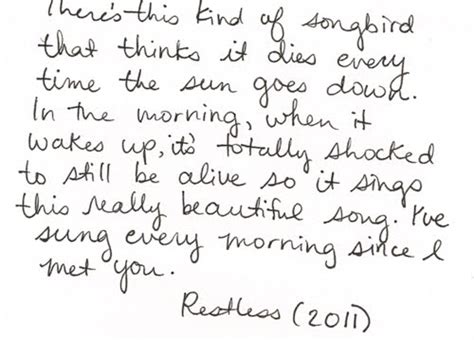 There's this kind of songbird
that thinks it dies every
time the sun goes down.
In the morning, when it
wakes up, it's totally shocked
to still be alive so it sings
this really beautiful song. I've
sung every morning since I
met you.
Restless (2011)